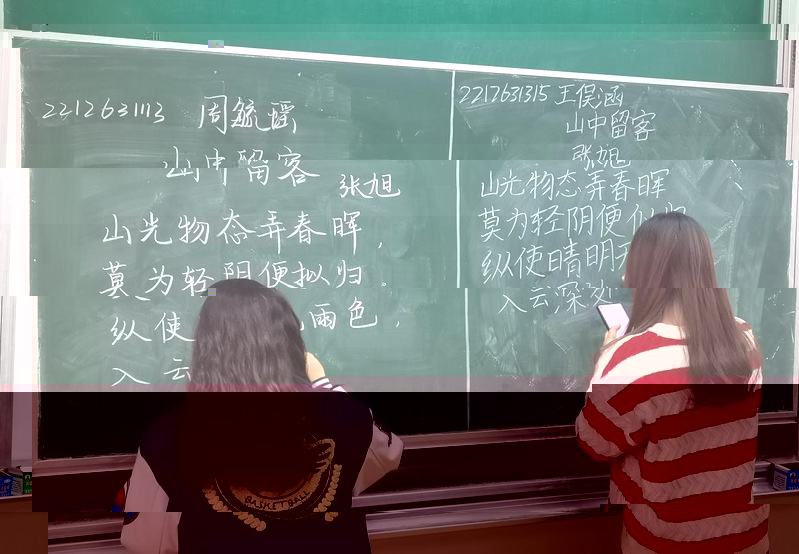 2212631113 周毓瑶
山中留客
张旭
山光物态弄春晖，
莫为轻阴便拟归。
纵使雨色，
入云
2212631315 王俣涵
山中留客
张旭
山光物态弄春晖
莫为轻阴便似归
纵使晴明无
入云深处
BASKETBALL